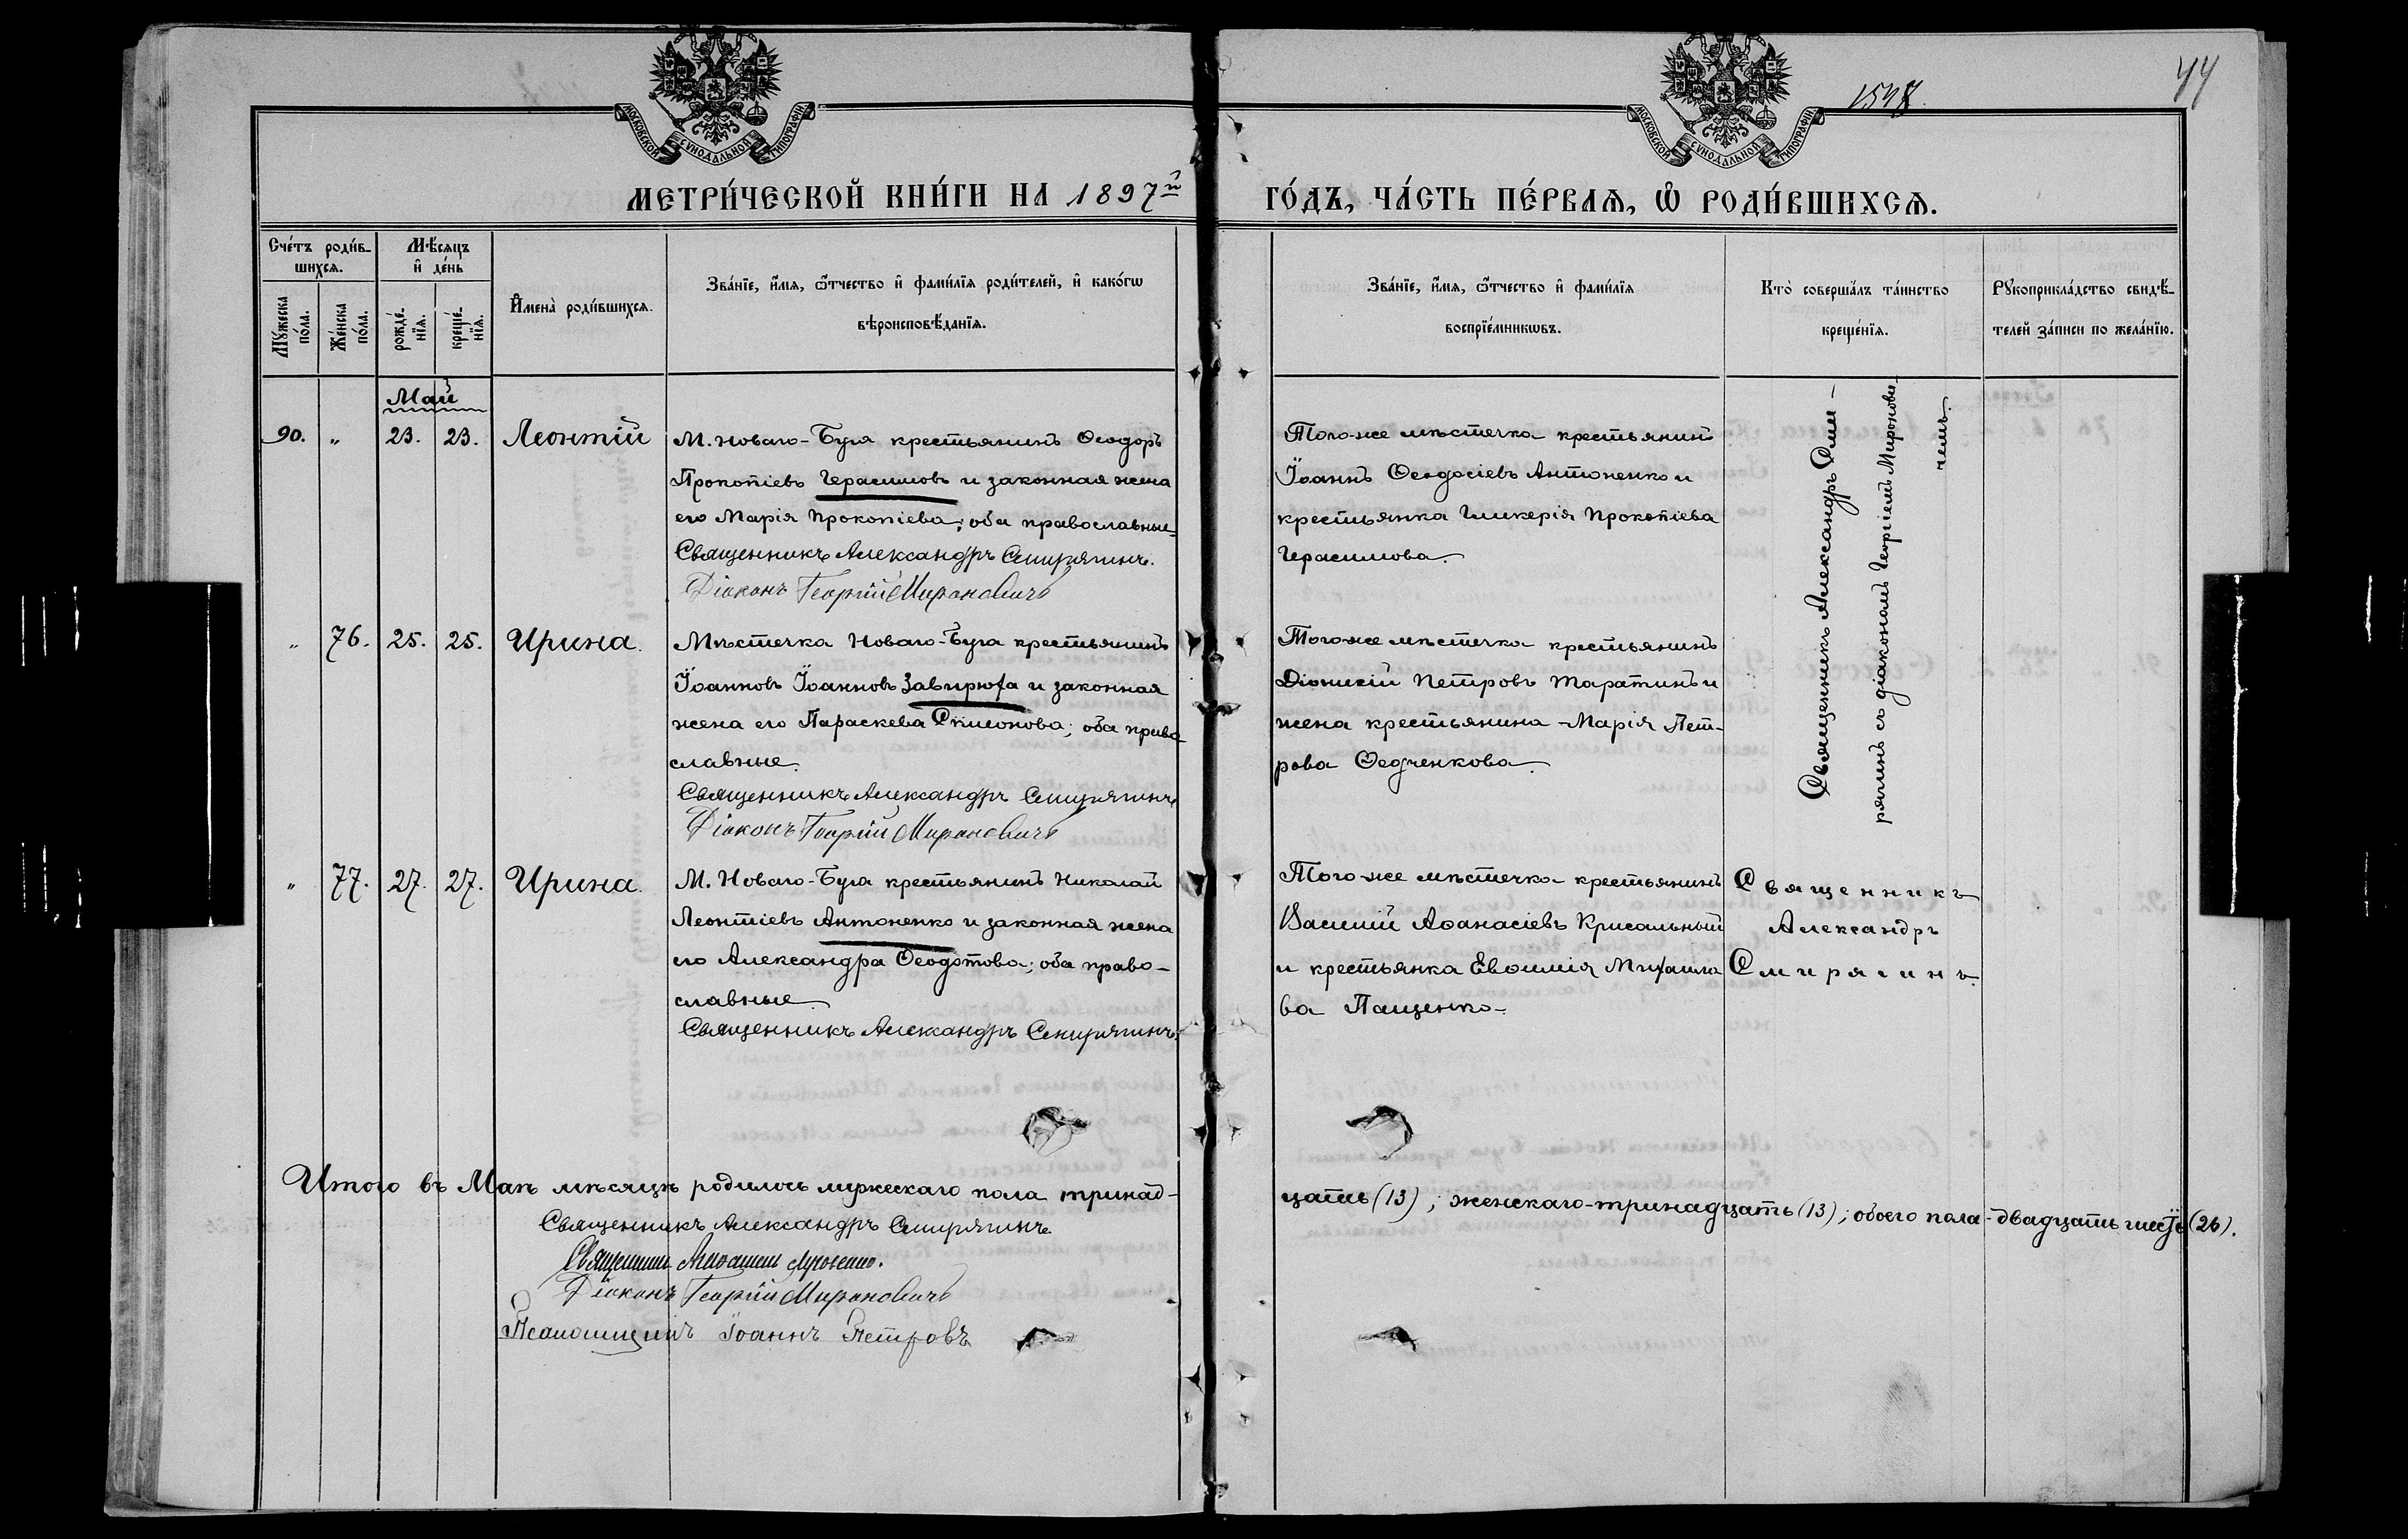 МОСКОВСКОЙ СѴНОДАЛЬНОЙ ТИПОГРАФІИ
МОСКОВСКОЙ СѴНОДАЛЬНОЙ ТИПОГРАФІИ
44
МЕТРИ́ЧЕСКОЙ КНИ́ГИ НА 1897й
ГО́ДЪ, ЧА́СТЬ ПЕ́РВАѦ, Ѡ҆ РОДИ́ВШИХСѦ.
Сче́тъ роди́в-
шихсѧ.
Мꙋ́жеска
по́ла.
Же́нска
по́ла.
Мѣ́сѧцъ
и҆ де́нь
рожде́-
нїѧ.
креще́-
нїѧ.
И҆мена̀ роди́вшихсѧ.
Зва́нїе, и҆́мѧ, ѻ҆́тчество и҆ фами́лїѧ роди́телей, и҆ како́гѡ
вѣроисповѣ́данїѧ.
Зва́нїе, и҆́мѧ, ѻ҆́тчество и҆ фами́лїѧ
воспрїе́мникѡвъ.
Кто̀ соверша́лъ та́инство
креще́нїѧ.
Рꙋкоприкла́дство свидѣ́-
телей за́писи по жела́нїю.
Май
90. „ 23. 23. Леонтій
М. Новаго-Буга крестьянинъ Ѳеодоръ
Прокопіевъ Герасимовъ и законная жена
его Марія Прокопіева; оба православные
Священникъ Александръ Смирягинъ.
Діаконъ Георгій Мироновичъ
Того-же мѣстечка крестьянинъ
Іоаннъ Ѳеодосіевъ Антоненко и
крестьянка Гликерія Прокопіева
Герасимова.
Священникъ Александръ Сми-
рягинъ съ діакономъ Георгіемъ Миронови-
чемъ.
„ 76. 25. 25. Ирина.
Мѣстечка Новаго-Буга крестьянинъ
Іоанновъ Іоанновъ Завирюха и законная
жена его Параскева Симеонова; оба право-
славные.
Священникъ Александръ Смирягинъ
Діаконъ Георгій Мироновичъ
Того-же мѣстечка крестьянинъ
Діонисій Петровъ Таратинъ и
жена крестьянина - Марія Пет-
рова Ѳедченкова.
„ 77. 27. 27. Ирина.
М. Новаго-Буга крестьянинъ Николай
Леонтіевъ Антоненко и законная жена
его Александра Ѳеодотова; оба право-
славные.
Священникъ Александръ Смирягинъ.
Того-же мѣстечка крестьянинъ
Василій Аѳанасіевъ Крисальный
и крестьянка Евѳимія Михаило-
ва Пащенко.
Священникъ
Александръ
Смирягинъ.
Итого въ Маѣ мѣсяцѣ родилось мужескаго пола тринад-
цать (13); женскаго-тринадцать (13); обоего пола-двадцать шесть (26).
Священникъ Александръ Смирягинъ.
Священникъ
Діаконъ Георгій Мироновичъ
Псаломщикъ Іоаннъ Петровъ